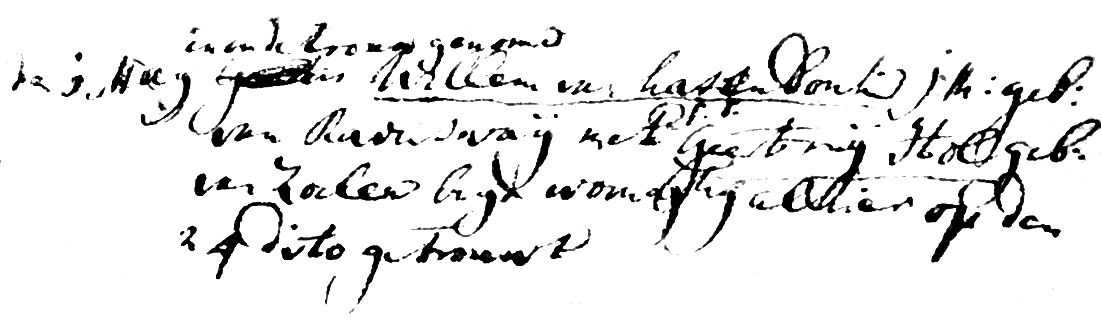 in ondertrouw genomen
den 3 Meij Willem van hasen Donk j:m: geb:
van Ravenswaij met Geertruij Stol geb:
van Zoelen beyde woonagtig alhier op den
24 dito getrouwt